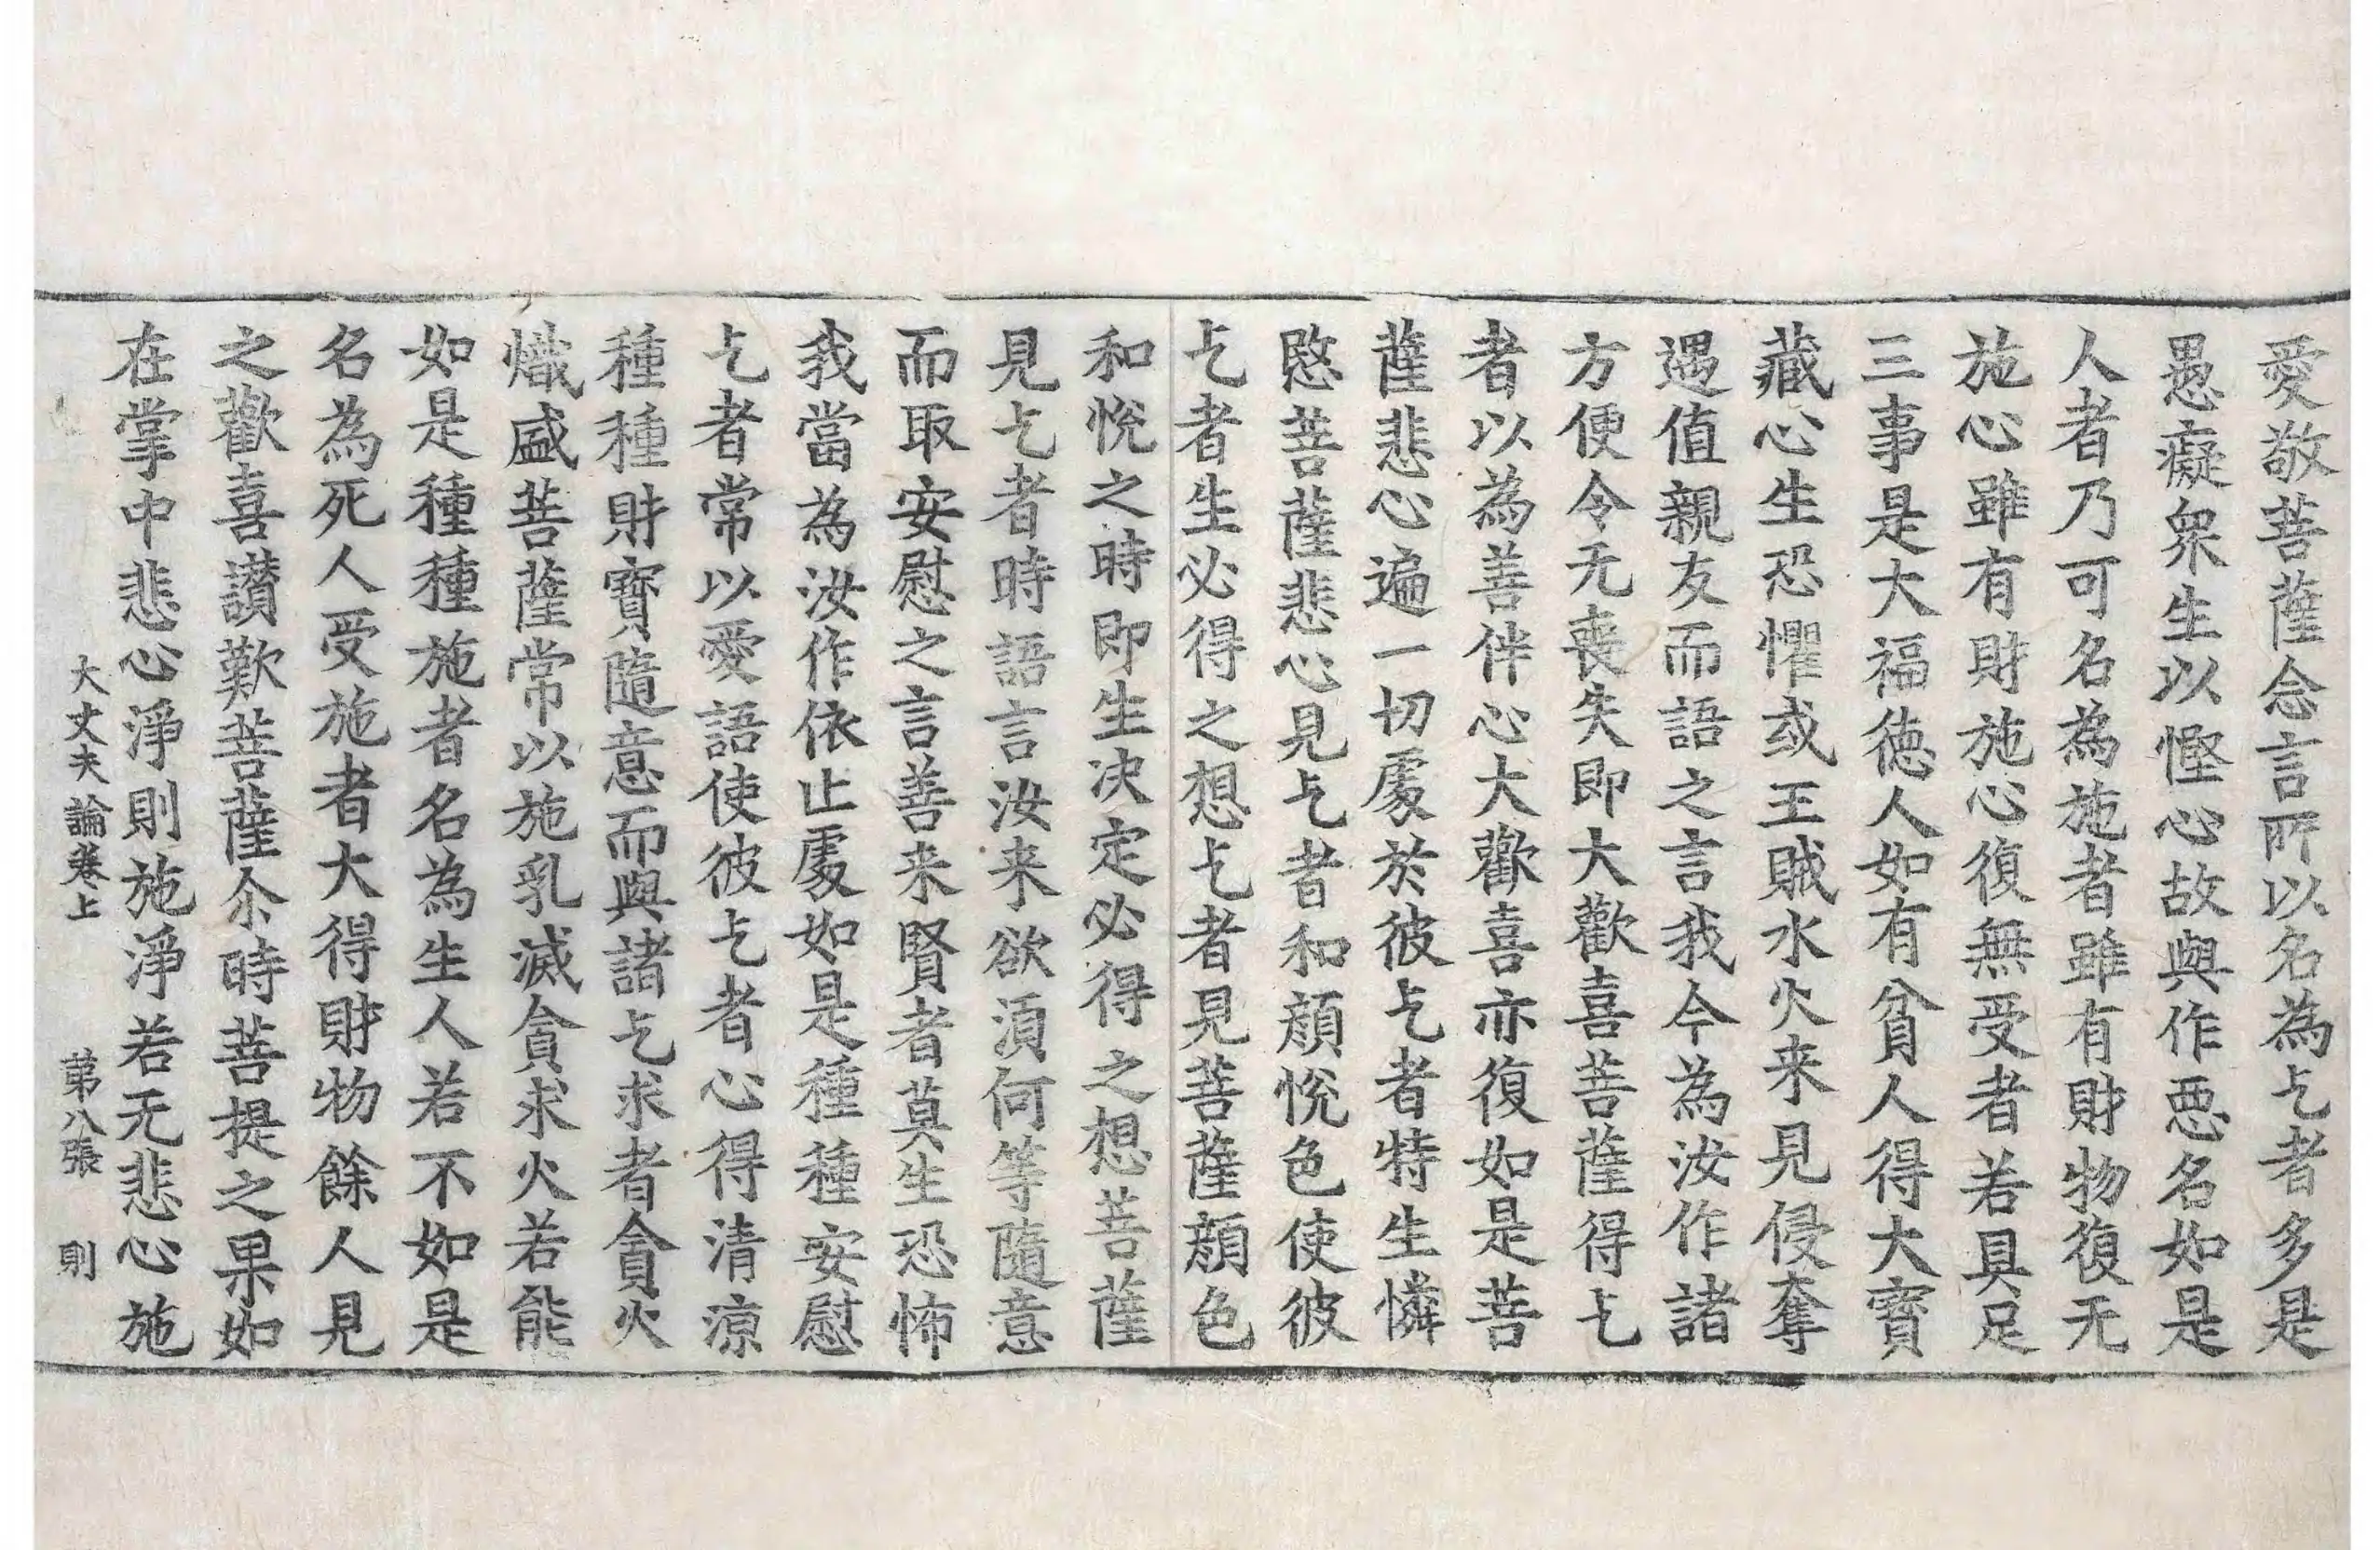 愛敬菩薩念言所以名為乞者多是
愚癡衆生以慳心故與作惡名如是
人者乃可名為施者雖有財物復无
施心雖有財施心復無受者若具足
三事是大福德人如有貧人得大寶
藏心生恐懼或王賊水火来見侵奪
遇值親友而語之言我今為汝作諸
方便令无喪失即大歡喜菩薩得乞
者以為善伴心大歡喜亦復如是菩
薩悲心遍一切處於彼乞者特生憐
愍菩薩悲心見乞者和顔悅色使彼
乞者生必得之想乞者見菩薩顔色
和悅之時即生决定必得之想菩薩
見乞者時語言汝来欲湏何等隨意
而取安慰之言善来賢者莫生恐怖
我當為汝作依止處如是種種安慰
乞者常以愛語使彼乞者心得清涼
種種財寶隨意而與諸乞求者貪火
熾盛菩薩常以施乳滅貪求火若能
如是種種施者名為生人若不如是
名為死人受施者大得財物餘人見
之歡喜讃歎菩薩尒時菩提之果如
在掌中悲心淨則施淨若无悲心施
大丈夫論卷上 第八張 則